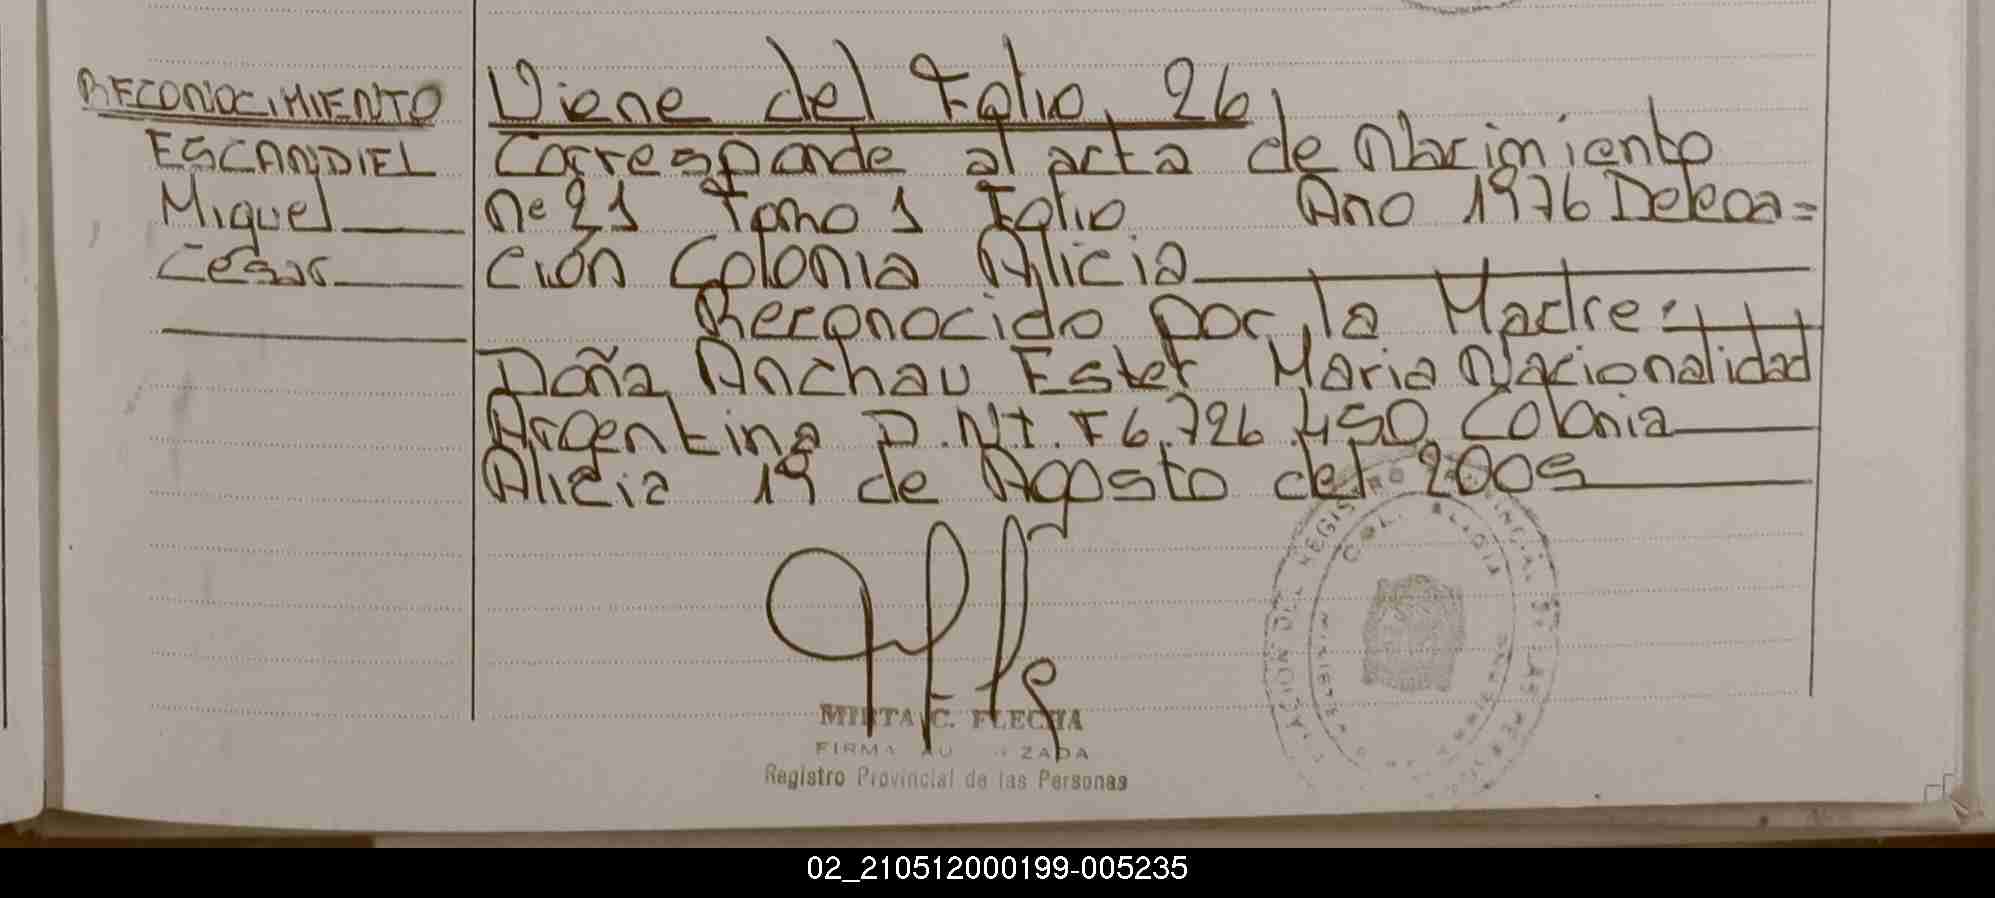 RECONOCIMIENTO
ESCANDIEL
Miguel
César
Viene del Folio 26
Corresponde al acta de Nacimiento
nº 21 Tomo 1 Folio Año 1976 Delega=
ción Colonia Alicia
Reconocido por la Madre:
Doña Anchau Ester Maria Nacionalidad
Argentina D.N.I. F6.726.450 Colonia
Alicia 19 de Agosto del 2005
MIRTA C. FLECHA
FIRMA AUTORIZADA
Registro Provincial de las Personas
COL. ALICIA
02_210512000199-005235